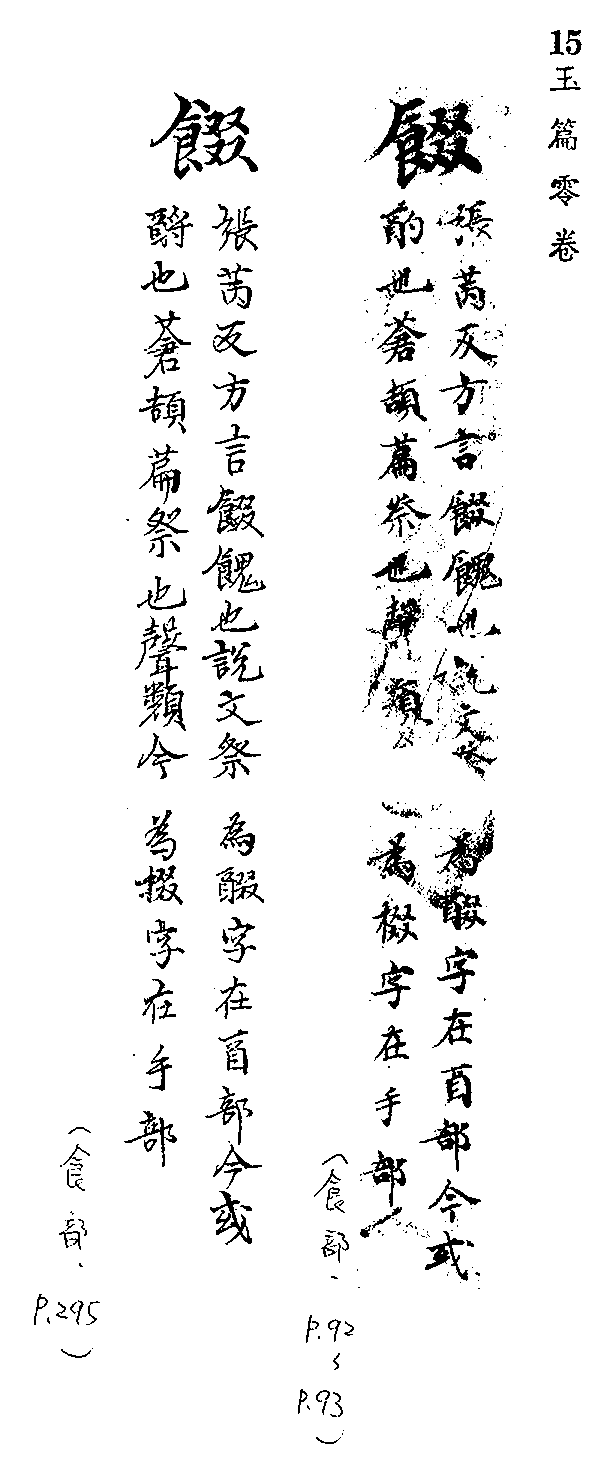 15玉篇零卷
餟
張芮反方言餟餽也說文祭
酹也蒼頡篇祭也聲類今
為醊字在酉部今或
為掇字在手部
(食部、
P.92
〜
P.93)
餟
張芮反方言餟餽也說文祭
酹也蒼頡篇祭也聲類今
為醊字在酉部今或
為掇字在手部
(食部、
P.295)